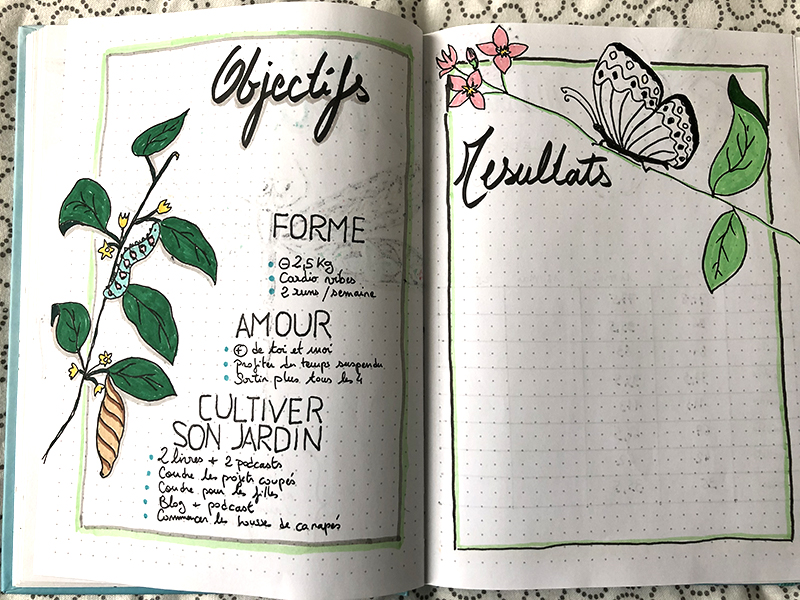 Objectifs
FORME
⊖ 2,5 Kg
Cardio vibes
2 runs / semaine
AMOUR
⊕ de toi et moi
Profiter du temps suspendu
Sortir plus tous les 4
CULTIVER
SON JARDIN
2 livres + 2 podcasts
Coudre les projets coupés
Coudre pour les filles
Blog + podcast
Commencer les housses de canapés
Resultats